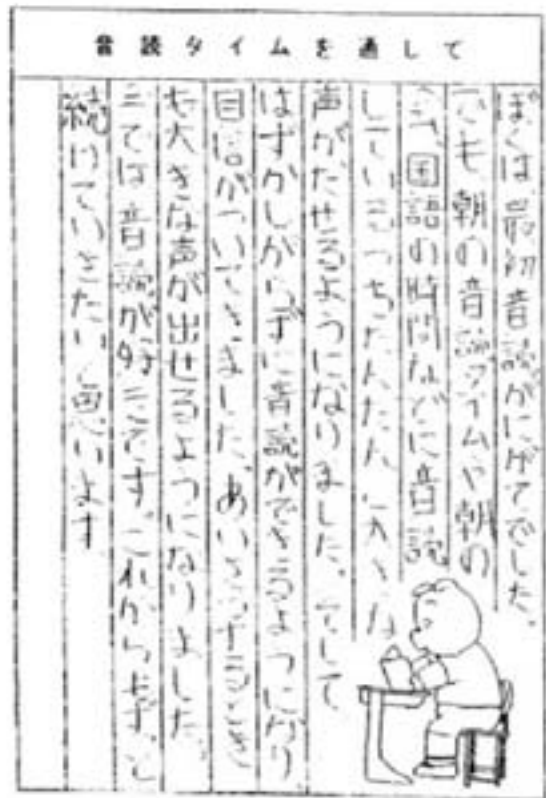 音読タイムを通して
ぼくは、最初音読がにがてでした。
でも朝の音読タイムや朝の
会、国語の時間などに音読
していくうちにだんだん大きな
声がだせるようになりました。そして
はずかしがらずに音読ができるようになり
自信がついてきました。あいさつするとき
も大きな声が出せるようになりました。
音読が好きです。これからもずっと
続けていきたいと思います